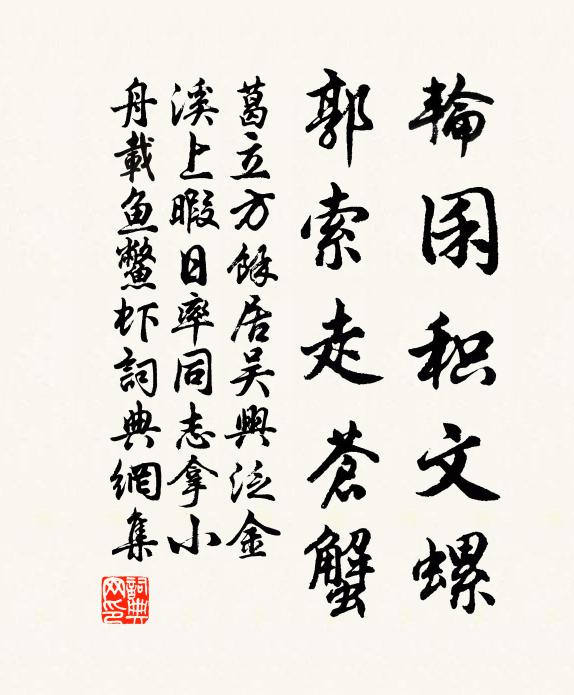 輪囷积文螺
郭索走蒼蟹
葛立方餘居吴興泛金
溪上暇日率同志拿小
舟載鱼鳖虾詞典網集
詞典网印